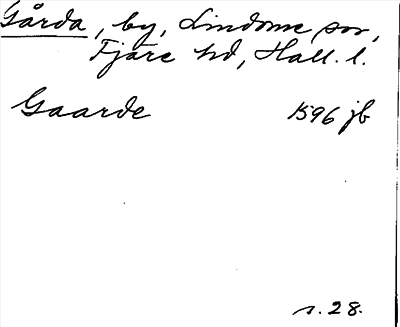 Gårda, by, Lindome sn,
Fjäre hd, Hall. l.
Gaarde 1596 jb
s. 28.